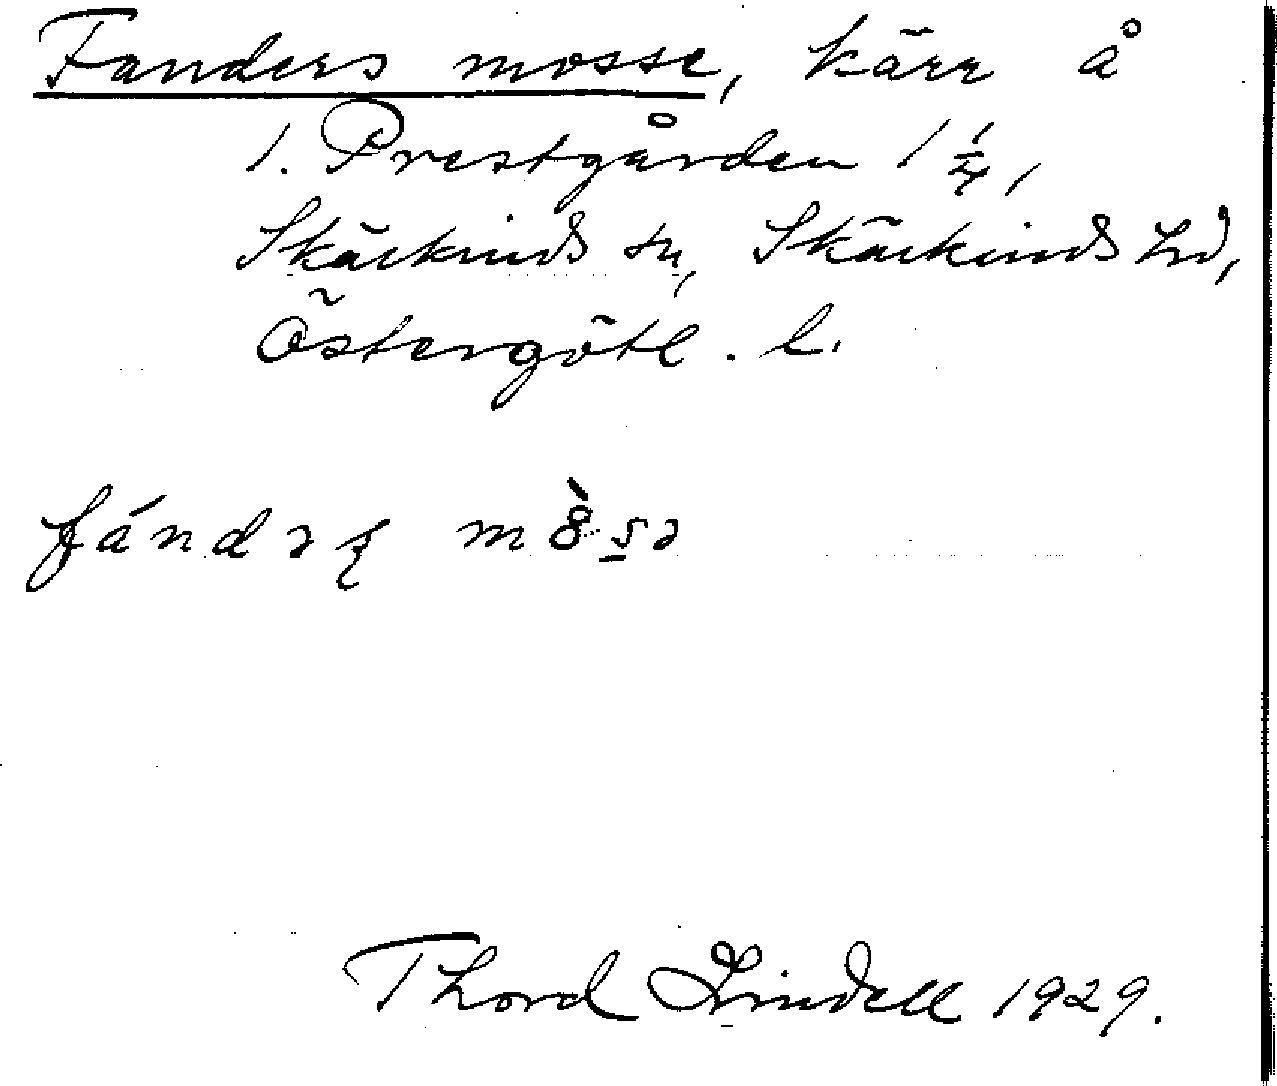 Fanders mosse, kärr å
1. Prestgården 1 1/4,
Skärkinds sn, Skärkinds hd,
Östergötl. l.
fándəʂ m
Thord Lindell 1929.